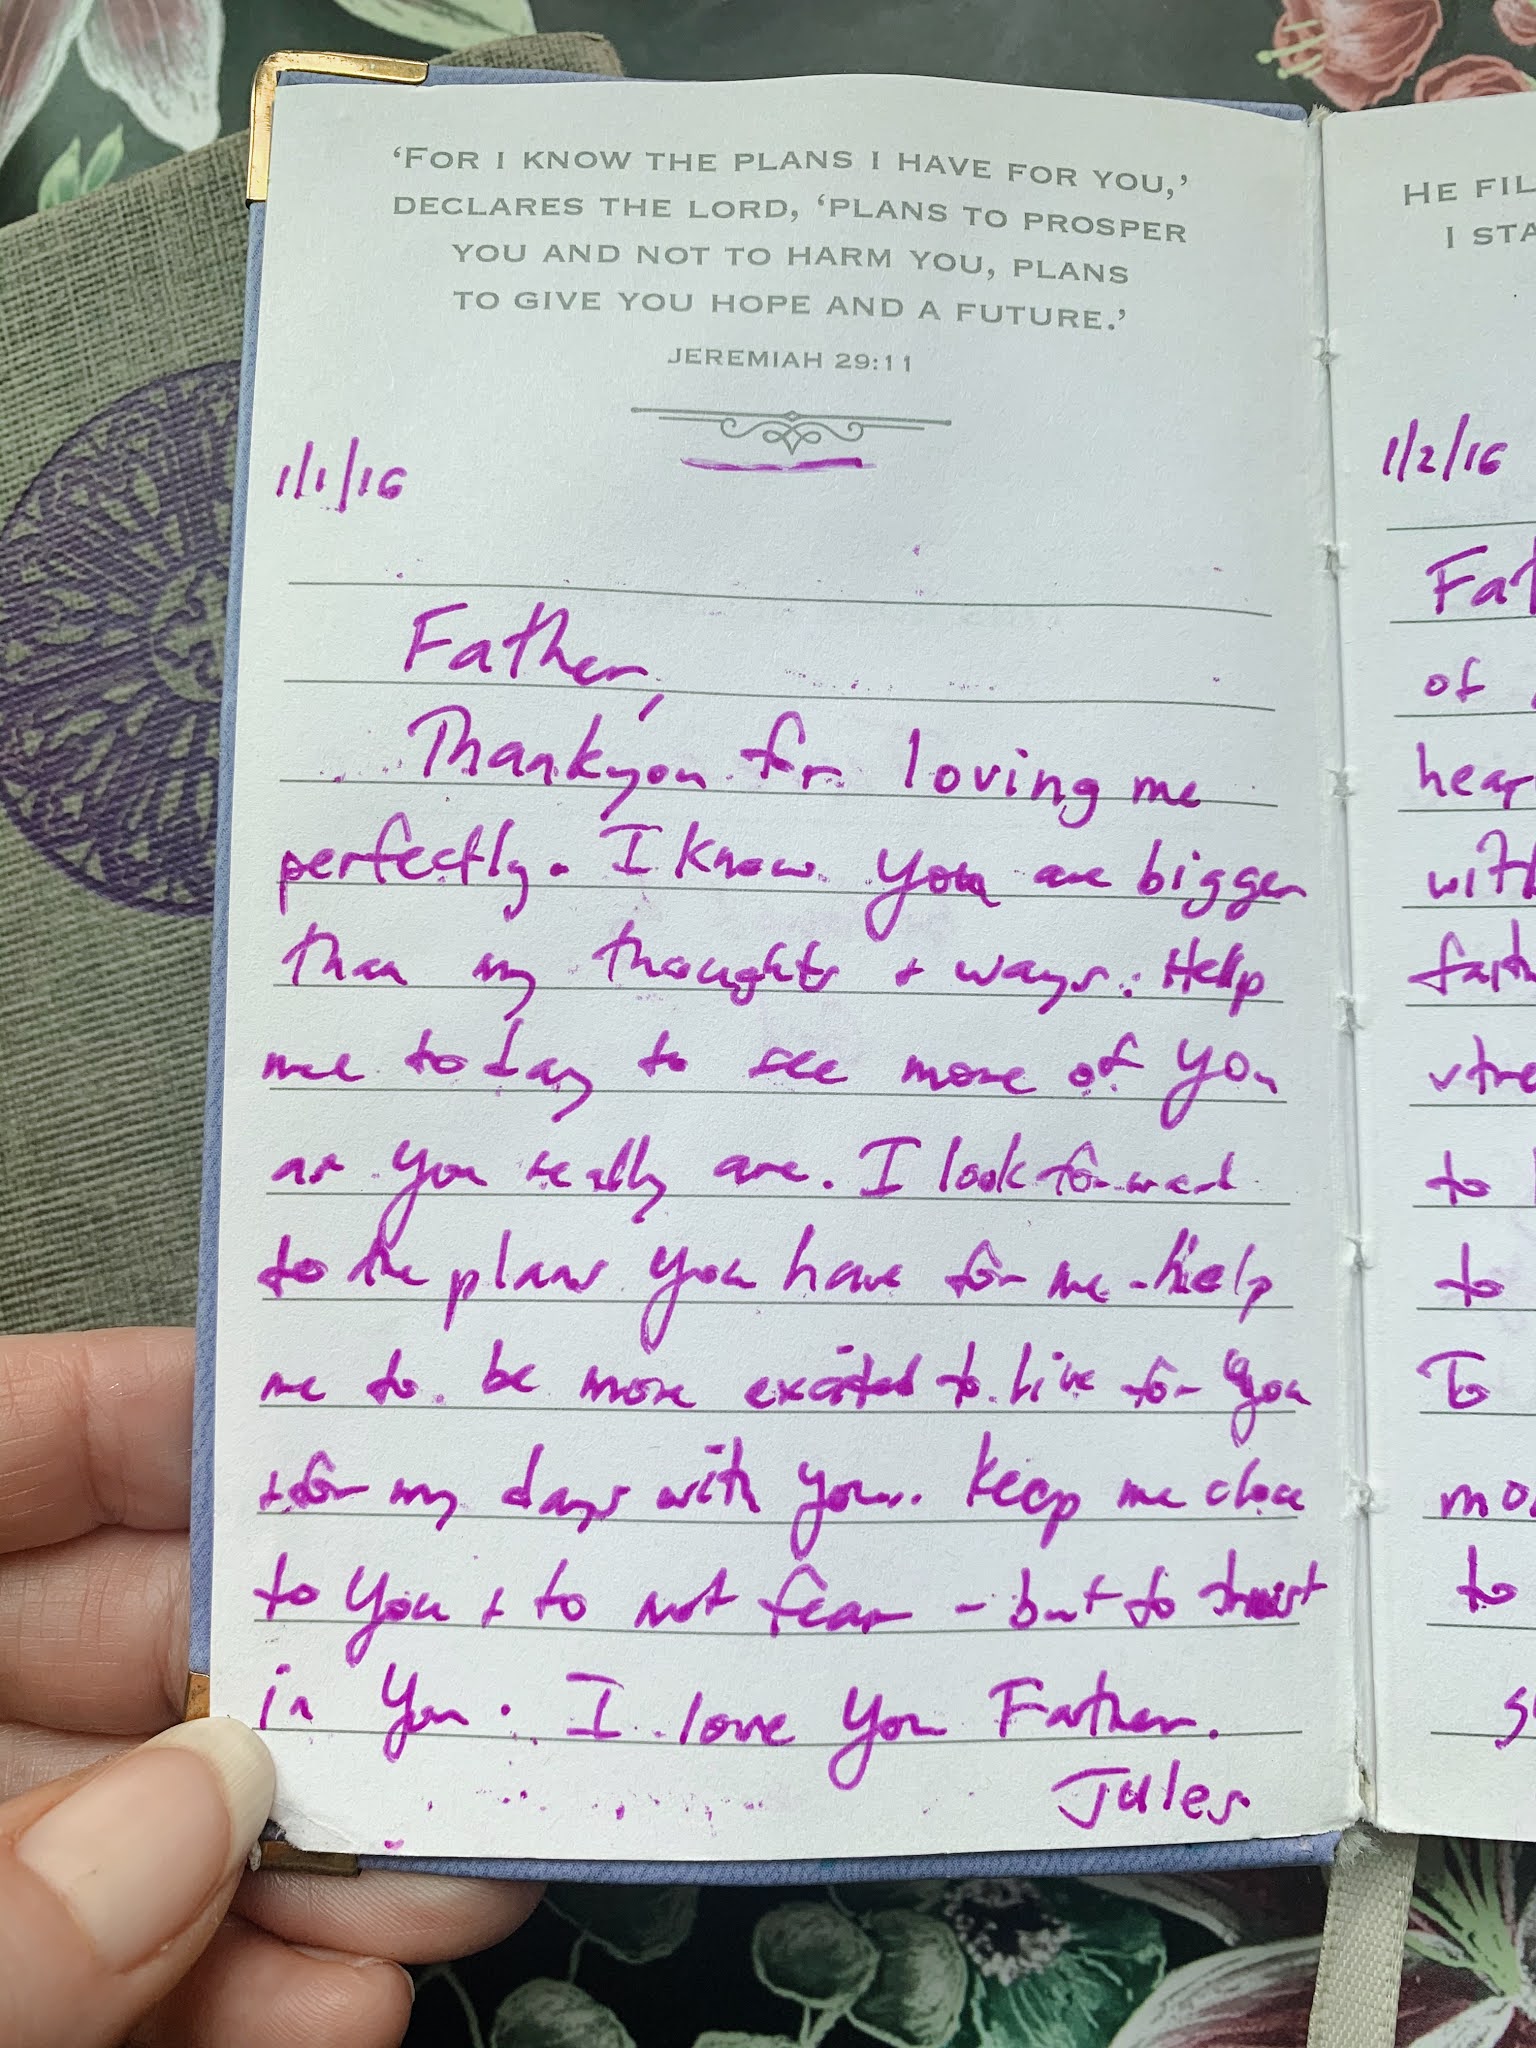 'FOR I KNOW THE PLANS I HAVE FOR YOU,'
DECLARES THE LORD, 'PLANS TO PROSPER
YOU AND NOT TO HARM YOU, PLANS
TO GIVE YOU HOPE AND A FUTURE.'
JEREMIAH 29:11
1/1/16
Father,
Thankyou for loving me
perfectly. I know you are bigger
than my thoughts + ways. Help
me today to see more of You
as you really are. I look forward
to the plans you have for me - help
me to be more excited to live for you
+ for my days with you. Keep me close
to You + to not fear - but to trust
in You. I love You Father.
Jules
HE FIL
I STA
1/2/16
Fat
of
hear
with
faith
stre
to
to
To
mo
to